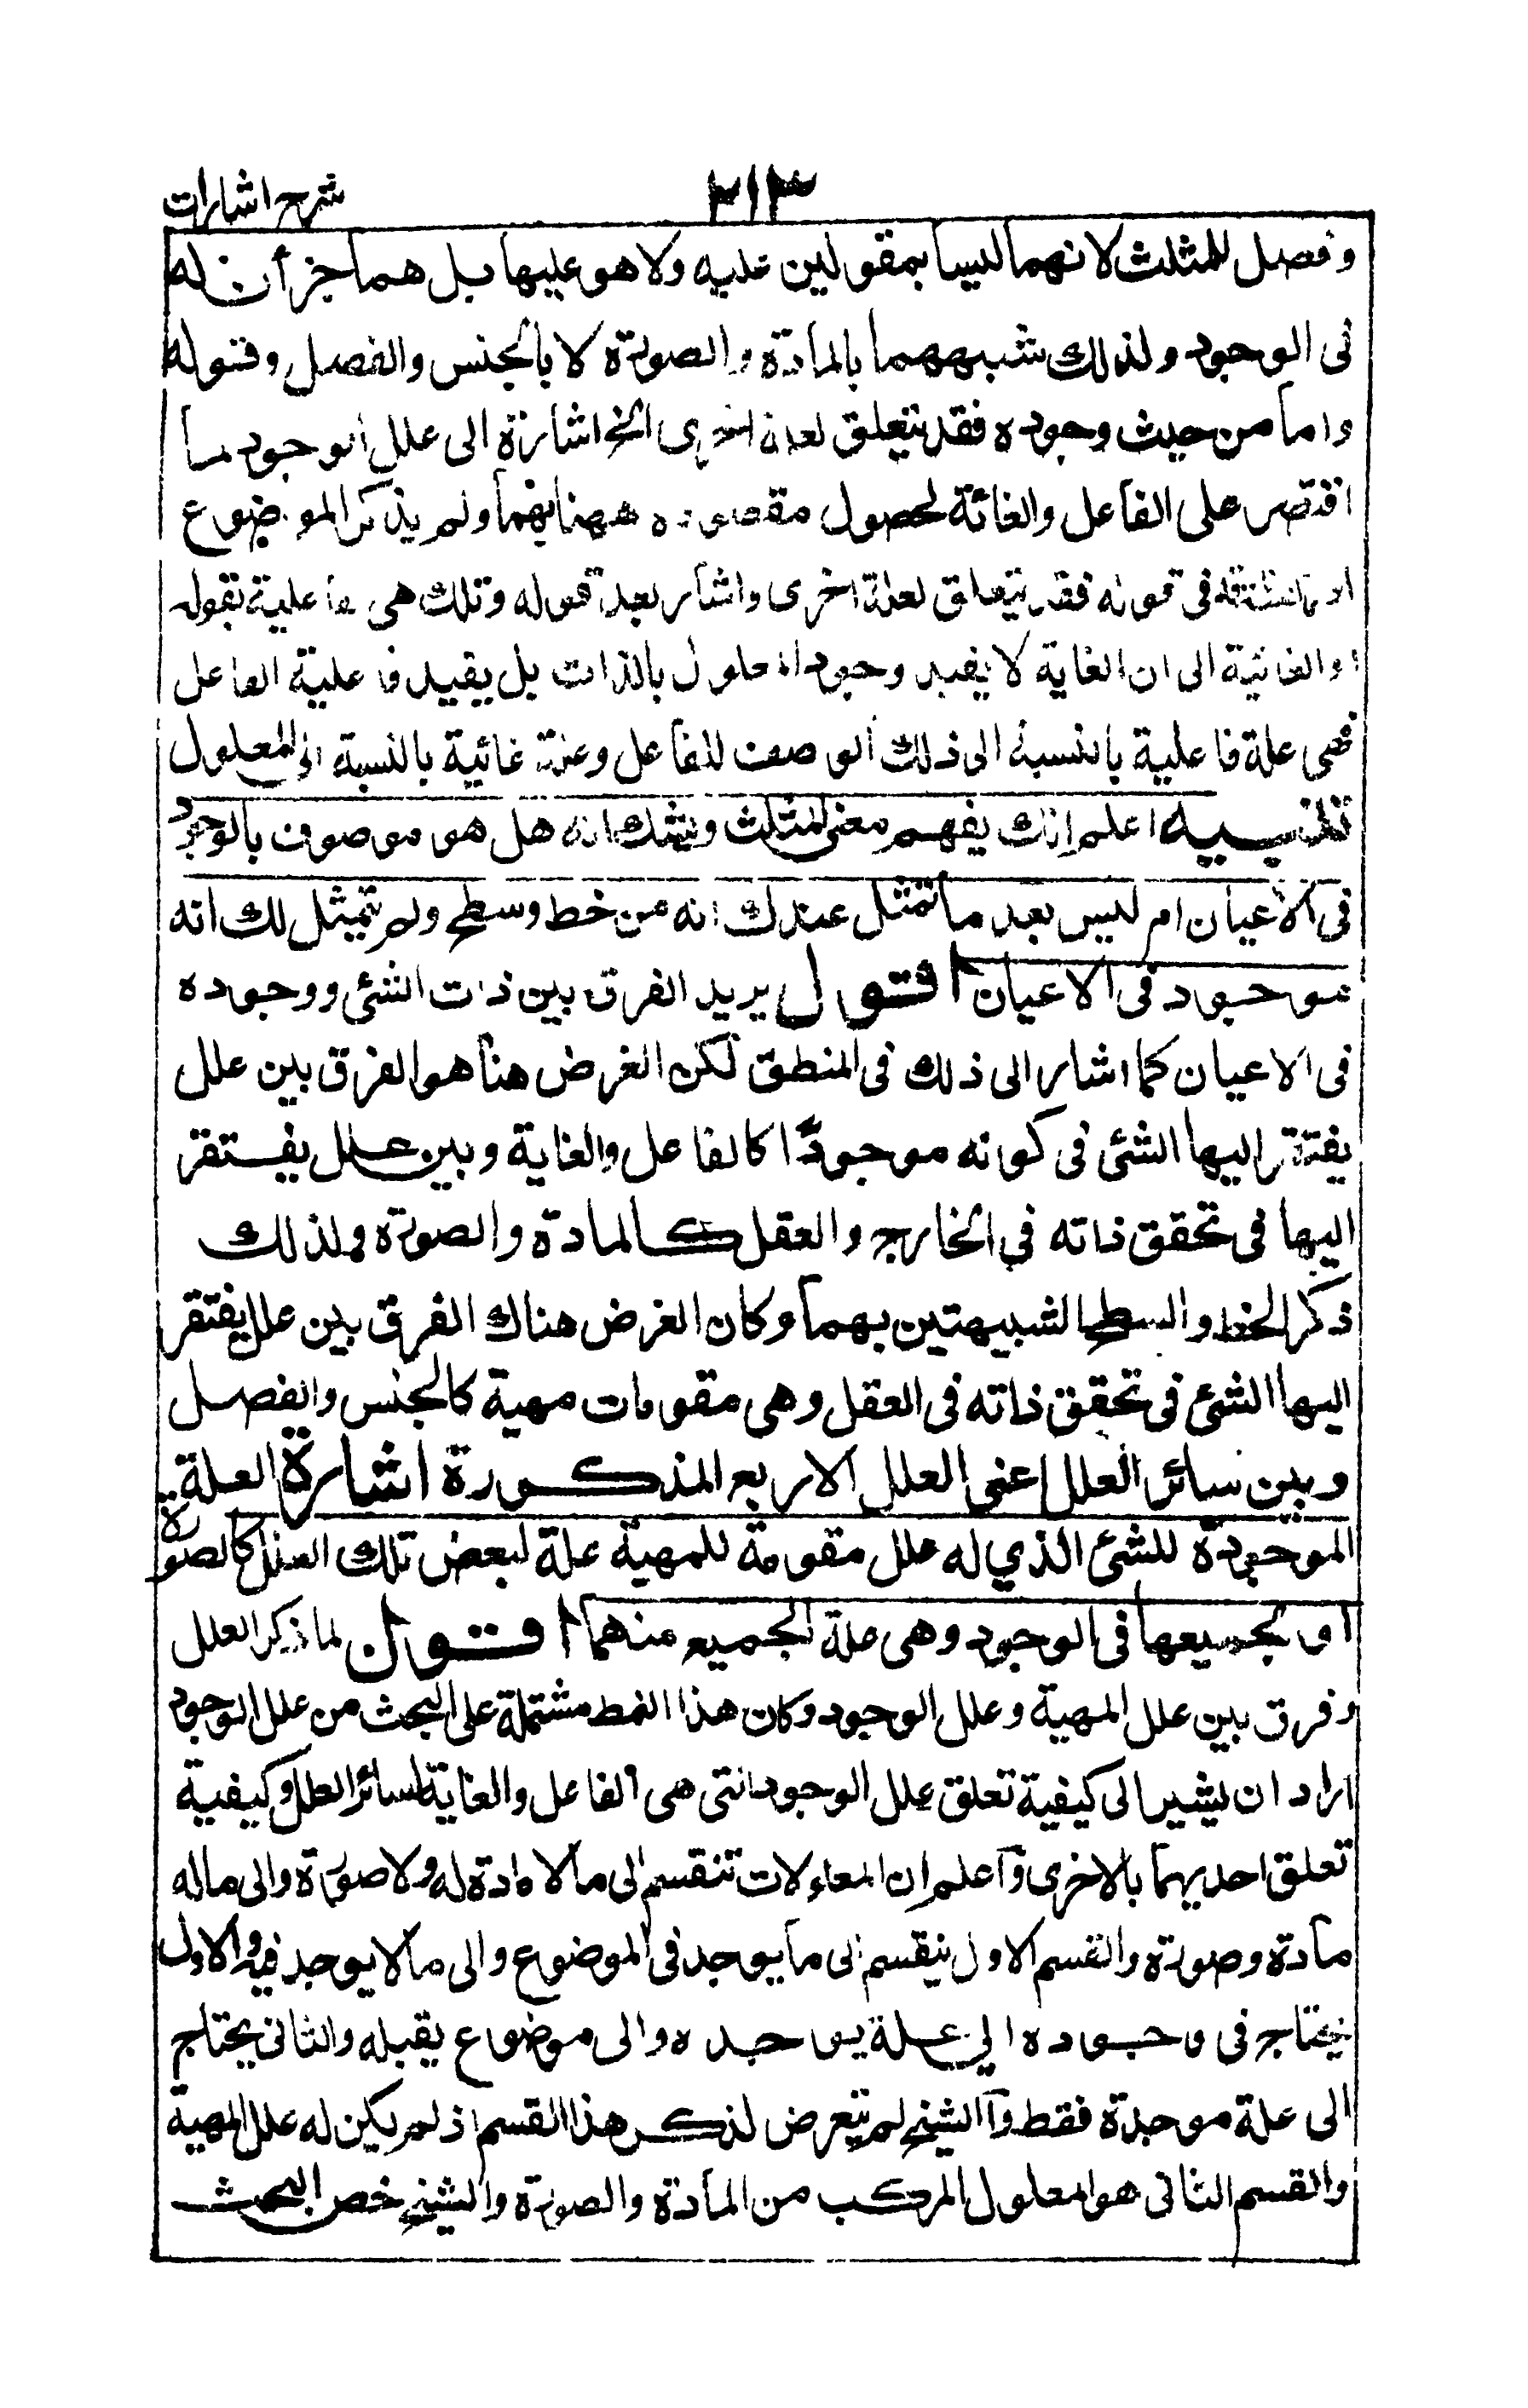 شرح اشارات
٣١٣
وفصل للمثلث لانهما ليسا بمقولين عليه ولا هو عليها بل هما جزأن له
فى الوجود ولذلك شبههما بالمادة والصورة لا بالجنس والفصل وقوله
واما من حيث وجوده فقد يتعلق لعلة اخرى الخ اشارة الى علل الوجود
اقتصر على الفاعل والغائة لحصول مقصوده ههنا بهما ولم يذكر الموضوع
فى قوله فقد يتعلق لعلة اخرى واشار بعد قوله وتلك هى فاعلية بقوله
او الغائية الى ان الغاية لا يفيد وجود المعلول بالذات بل يفيد فاعلية الفاعل
فهى علة فاعلية بالنسبة الى ذلك الوصف للفاعل وعلة غائية بالنسبة الى المعلول
تنبيه اعلم انك يفهم معنى المثلث ويشك انه هل هو موصوف بالوجود
فى الاعيان ام ليس بعد ما تمثل عندك انه من خط وسطح ولم يتمثل لك انه
موجود فى الاعيان اقول يريد الفرق بين ذات الشئ ووجوده
فى الاعيان كما اشار الى ذلك فى المنطق لكن الغرض هنا هو الفرق بين علل
يفتقر اليها الشئ فى كونه موجودًا كالفاعل والغاية وبين علل يفتقر
اليها فى تحقق ذاته فى الخارج والعقل كالمادة والصورة ولذلك
ذكر الخط والسطح الشبيهتين بهما وكان الغرض هناك الفرق بين علل يفتقر
اليها الشئ فى تحقق ذاته فى العقل وهى مقومات مهية كالجنس والفصل
وبين سائر العلل اعنى العلل الاربع المذكورة اشارة العلة
الموجودة للشئ الذي له علل مقومة للمهية علة لبعض تلك العلل كالصورة
او لجميعها فى الوجود وهى علة الجميع منهما اقول لما ذكر العلل
وفرق بين علل المهية وعلل الوجود وكان هذا النمط مشتملة على البحث من علل الوجود
اراد ان يشير الى كيفية تعلق علل الوجود التى هى الفاعل والغاية لسائر العلل وكيفية
تعلق احديهما بالاخرى وآعلم ان المعلولات تنقسم الى ما لا مادة له ولا صورة والى ما له
مادة وصورة والقسم الاول ينقسم الى ما يوجد فى الموضوع والى ما لا يوجد فيه والاول
يحتاج فى وجوده الي علة يوجده والى موضوع يقبله والثانى يحتاج
الى علة موجدة فقط وآلشيخ لم يتعرض لذكر هذا القسم اذ لم يكن له علل المهية
والقسم الثانى هو المعلول المركب من المادة والصورة والشيخ خص البحث